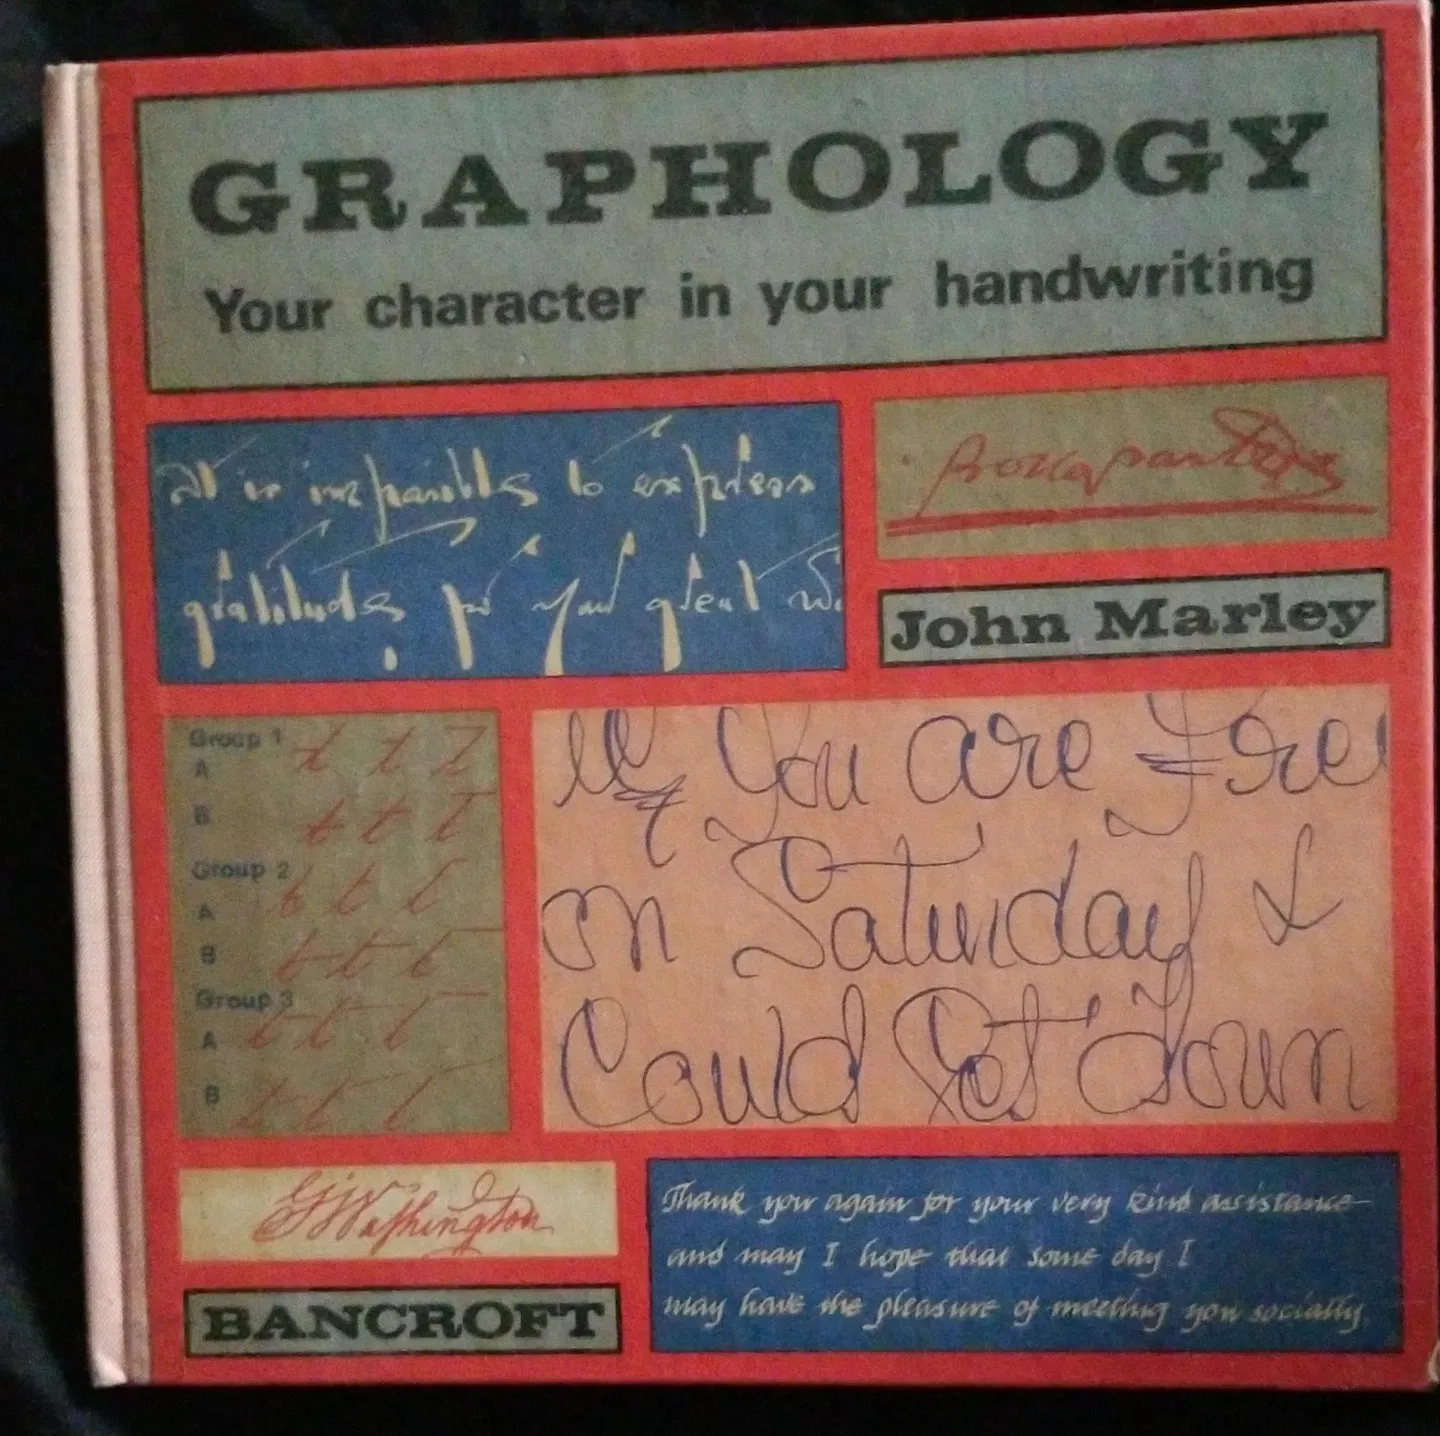 GRAPHOLOGY
Your character in your handwriting
It is impossible to express
gratitude for your great
John Marley
Group 1
A t t t
B t t t
Group 2
A t t t
B t t t
Group 3
A t t t
B t t t
If You are Free
on Saturday &
Could Get Down
G Washington
BANCROFT
Thank you again for your very kind assistance
and may I hope that some day I
may have the pleasure of meeting you socially.